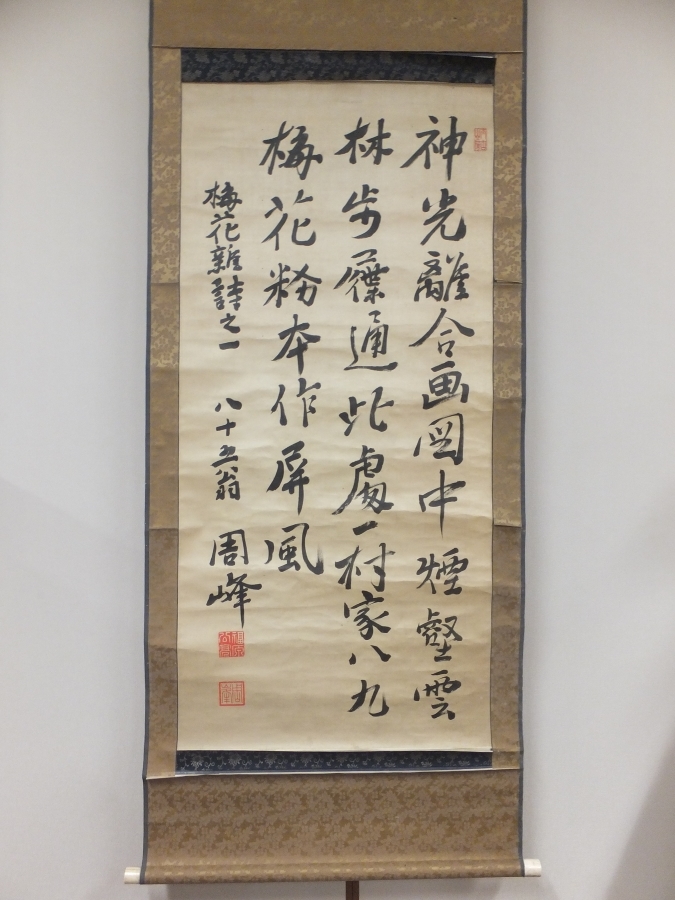 神光離合画図中煙壑雲
林歩屧通此處一村家八九
梅花粉本作屏風
梅花雑詩之一　八十五翁　周峰